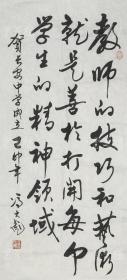 教师的技巧和艺术
就是善于打开每个
学生的精神领域
贺长安中学成立 己卯年 冯大彪